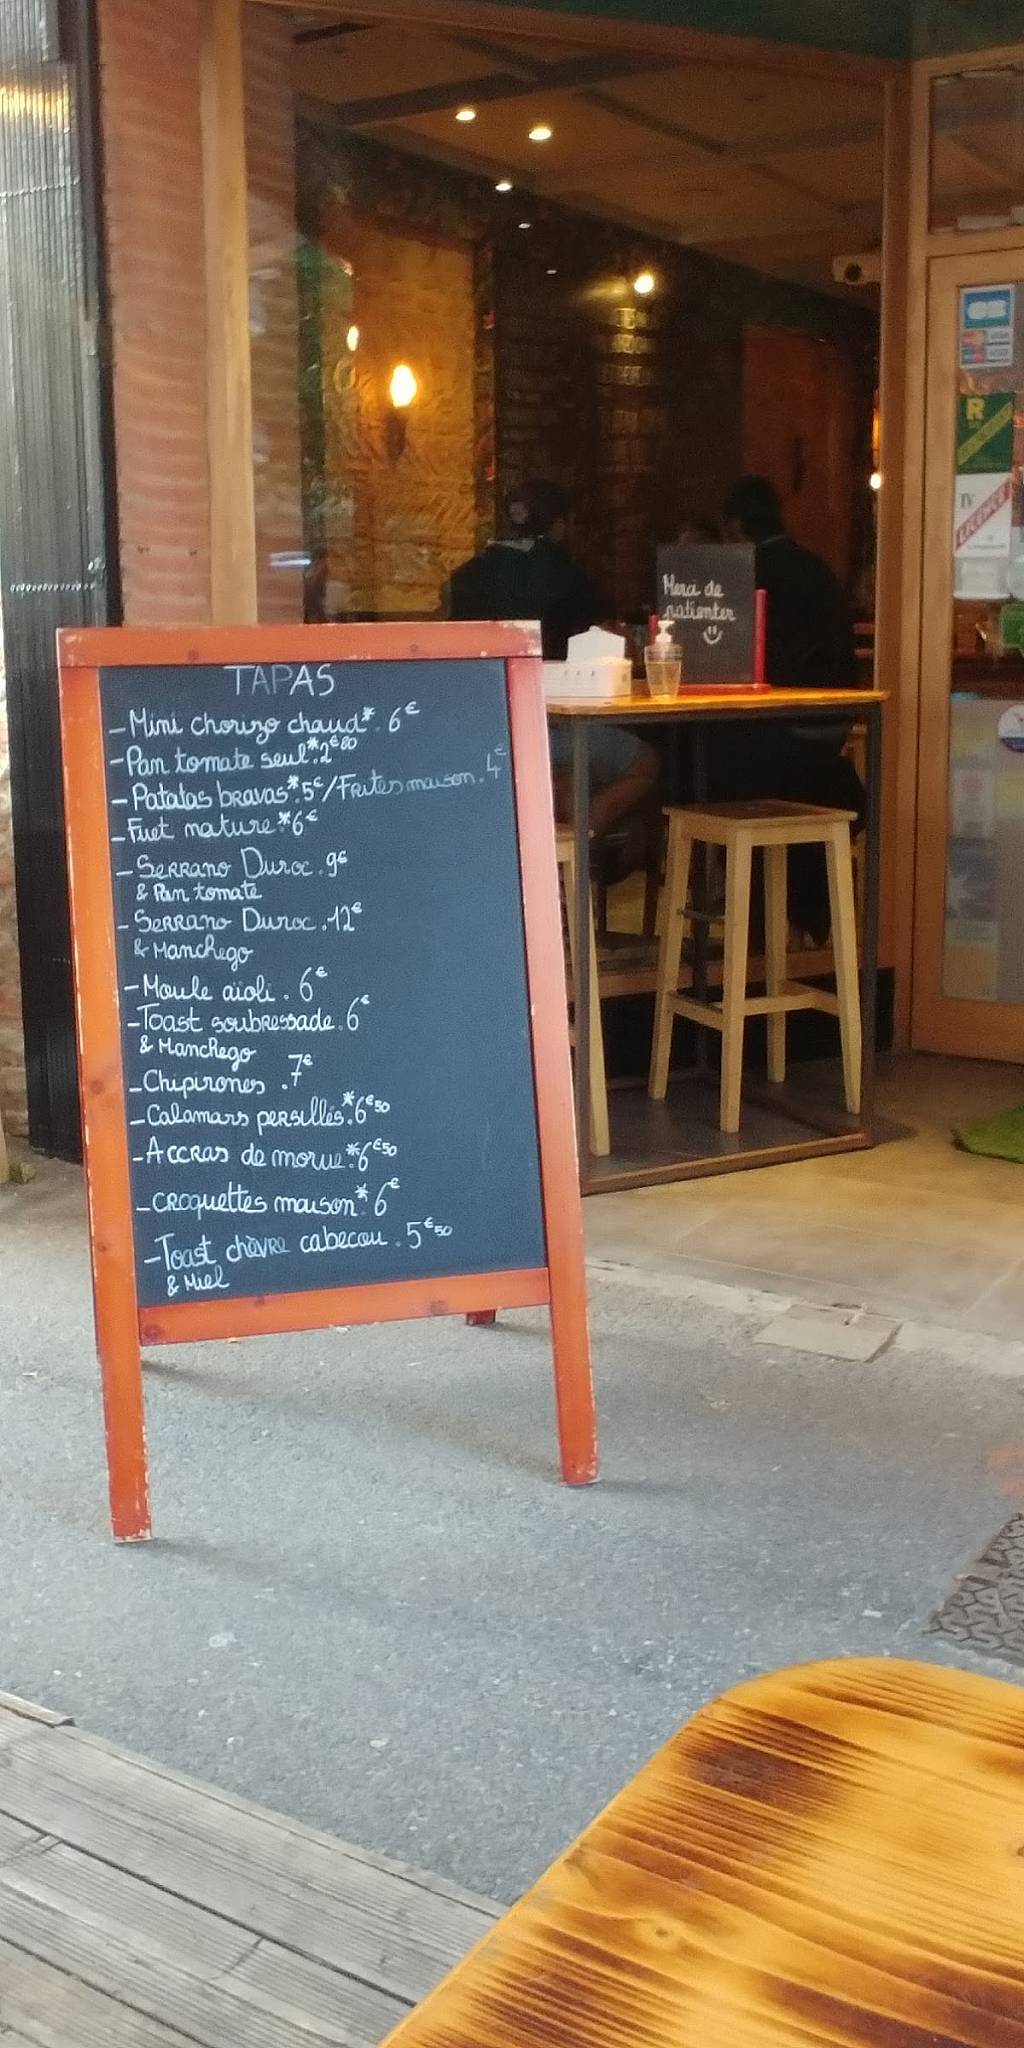 TAPAS
- Mini chorizo chaud*. 6€
- Pan tomate seul*. 2€80
- Patatas bravas*. 5€ / Frites maison. 4€
- Fuet nature*. 6€
- Serrano Duroc. 9€
& Pan tomate
- Serrano Duroc. 12€
& Manchego
- Moule aïoli. 6€
- Toast soubressade. 6€
& Manchego
- Chipirones. 7€
- Calamars persillés*. 6€50
- Accras de morue*. 6€50
- Croquettes maison*. 6€
- Toast chèvre cabecou. 5€50
& Miel
Merci de
patienter
VISA
R
IV
LICENCE